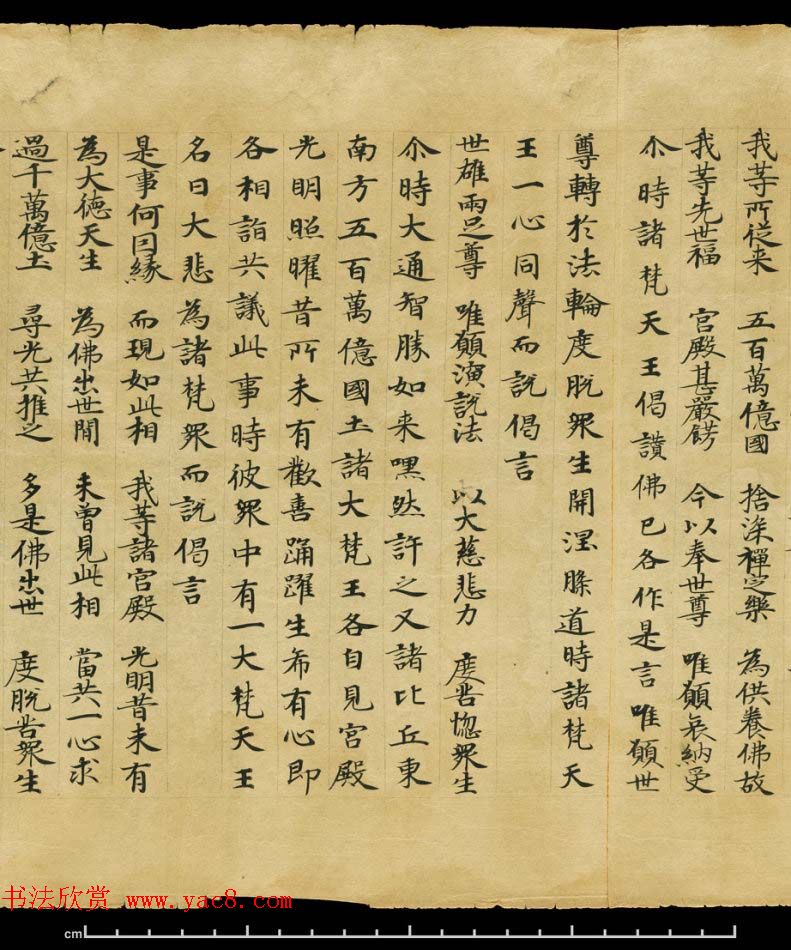 我等所從来　五百萬億國　捨深禪定樂　為供養佛故
我等先世福　宮殿甚嚴餝　今以奉世尊　唯願哀納受
尒時諸梵天王偈讃佛已各作是言唯願世
尊轉於法輪度脫衆生開涅槃道時諸梵天
王一心同聲而說偈言
世雄兩足尊　唯願演說法　以大慈悲力　度苦惱衆生
尒時大通智勝如来嘿然許之又諸比丘東
南方五百萬億國土諸大梵王各自見宮殿
光明照曜昔所未有歡喜踊躍生希有心即
各相詣共議此事時彼衆中有一大梵天王
名曰大悲為諸梵衆而說偈言
是事何因緣　而現如此相　我等諸宮殿　光明昔未有
為大德天生　為佛出世間　未曾見此相　當共一心求
過千萬億土　尋光共推之　多是佛出世　度脫苦衆生
书法欣赏 www.yac8.com
cm